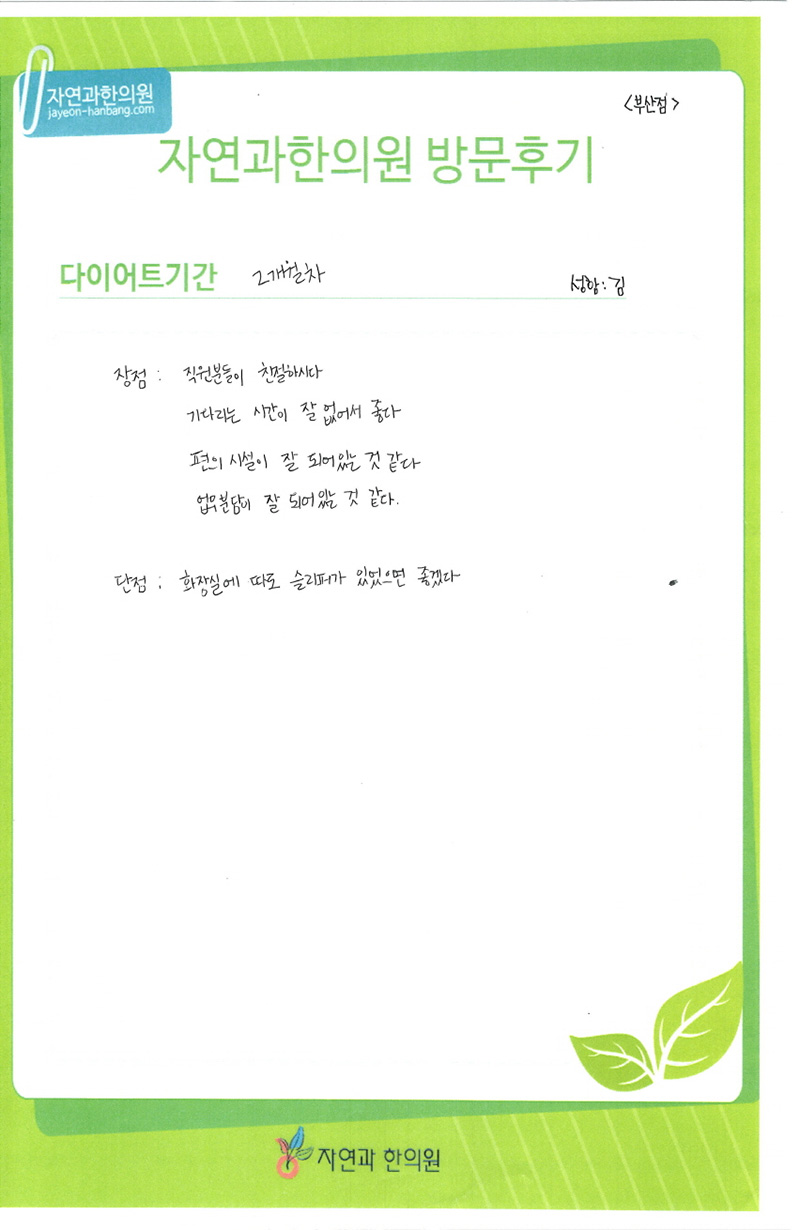 자연과한의원
jayeon-hanbang.com
<부산점>
자연과한의원 방문후기
다이어트기간 2개월차
성함 : 김
장점 : 직원분들이 친절하시다
기다리는 시간이 잘 없어서 좋다
편의시설이 잘 되어있는 것 같다
업무분담이 잘 되어있는 것 같다.
단점 : 화장실에 따로 슬리퍼가 있었으면 좋겠다
자연과 한의원